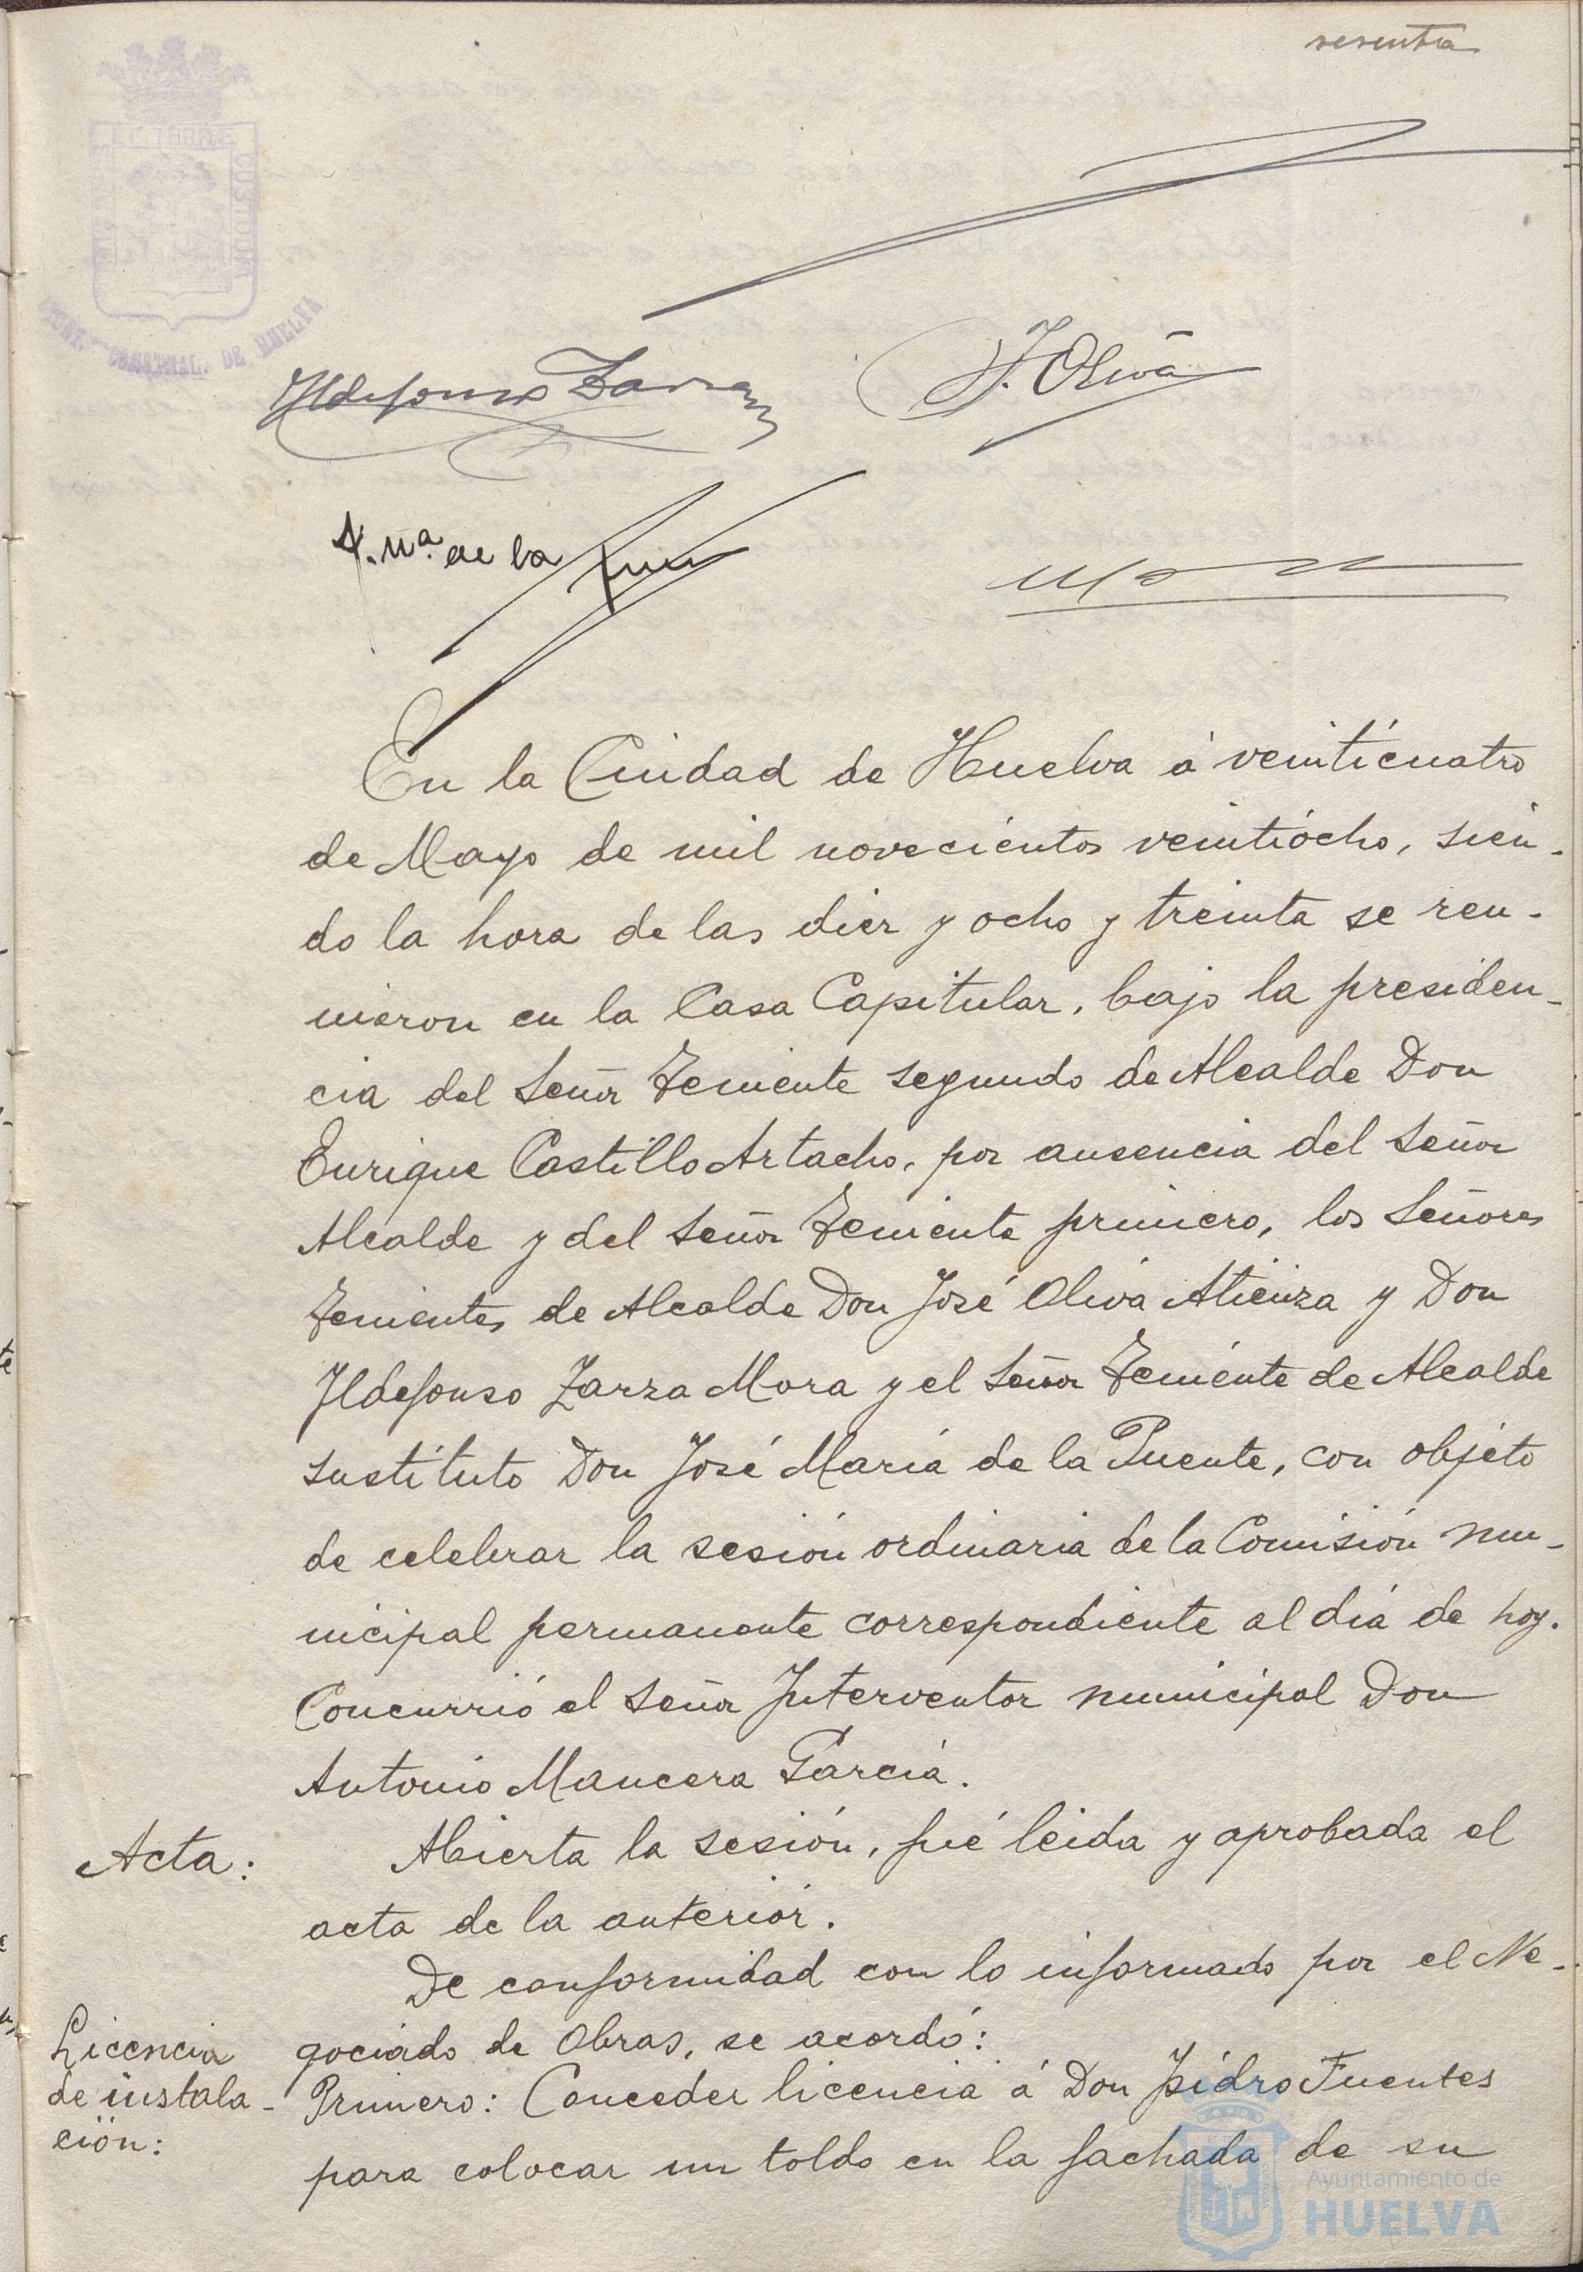 sesenta
Ildefonso Zarza
J. Oliva
J. Mª. de la
En la Ciudad de Huelva á veinticuatro
de Mayo de mil novecientos veintiocho, sien-
do la hora de las diez y ocho y treinta se reu-
nieron en la Casa Capitular, bajo la presiden-
cia del Señor Teniente segundo de Alcalde Don
Enrique Castillo Artacho, por ausencia del Señor
Alcalde y del Señor Teniente primero, los Señores
Tenientes de Alcalde Don José Oliva Atienza y Don
Ildefonso Zarza Mora y el Señor Teniente de Alcalde
sustituto Don José María de la Puente, con objeto
de celebrar la sesión ordinaria de la Comisión mu-
nicipal permanente correspondiente al día de hoy.
Concurrió el Señor Interventor municipal Don
Antonio Mancera García.
Acta: Abierta la sesión, fué leida y aprobada el
acta de la anterior.
De conformidad con lo informado por el Ne-
gociado de Obras, se acordó:
Licencia
de instala-
ción:
Primero: Conceder licencia á Don Isidro Fuentes
para colocar un toldo en la fachada de su
Ayuntamiento de
HUELVA